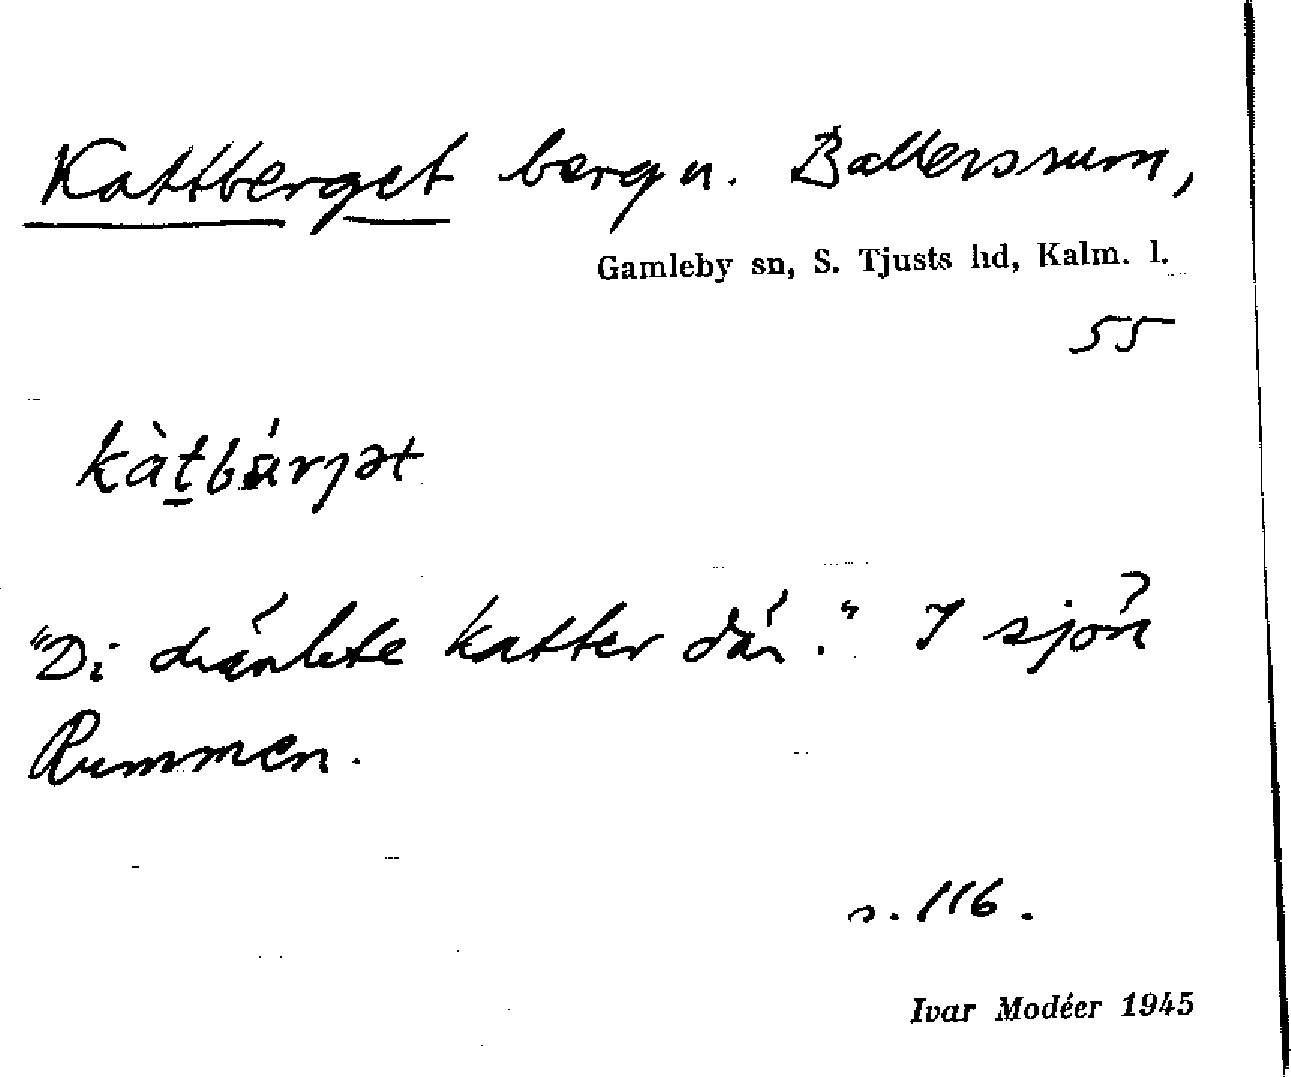 Kattberget bergn. Ballersrum,
Gamleby sn, S. Tjusts hd, Kalm. l.
55
kàt̲bárjət
"Di dränkte katter där." I sjön
Rummen.
s. 116.
Ivar Modéer 1945